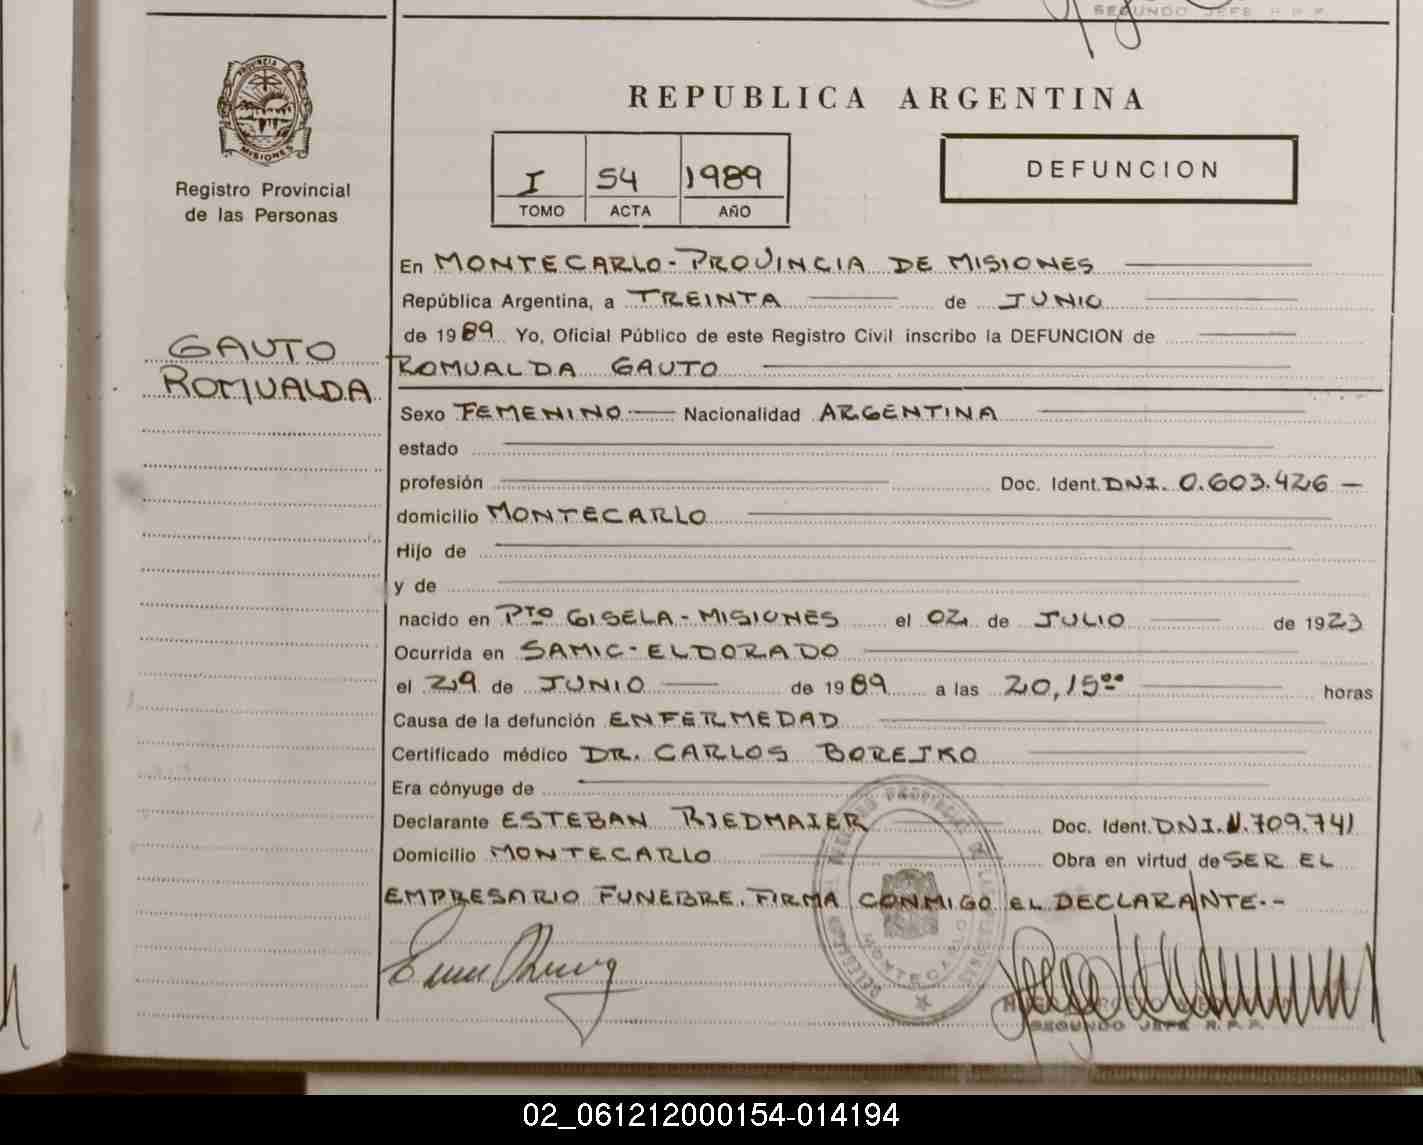 SEGUNDO JEFE R.P.P.
PROVINCIA DE
MISIONES
Registro Provincial
de las Personas
GAUTO
ROMUALDA
REPUBLICA ARGENTINA
I 54 1989
TOMO ACTA AÑO
DEFUNCION
En MONTECARLO - PROVINCIA DE MISIONES
República Argentina, a TREINTA de JUNIO
de 1989 Yo, Oficial Público de este Registro Civil inscribo la DEFUNCION de
ROMUALDA GAUTO
Sexo FEMENINO Nacionalidad ARGENTINA
estado
profesión Doc. Ident. DNI. 0.603.426 —
domicilio MONTECARLO
Hijo de
y de
nacido en Pto GISELA - MISIONES el 02 de JULIO de 1923
Ocurrida en SAMIC - ELDORADO
el 29 de JUNIO de 1989 a las 20,15 oo horas
Causa de la defunción ENFERMEDAD
Certificado médico DR. CARLOS BOREJKO
Era cónyuge de
Declarante ESTEBAN RIEDMAIER Doc. Ident. DNI. .709.741
Domicilio MONTECARLO Obra en virtud de SER EL
EMPRESARIO FUNEBRE. FIRMA CONMIGO EL DECLARANTE.-
MONTECARLO
SEGUNDO JEFE R.P.P.
02_061212000154-014194